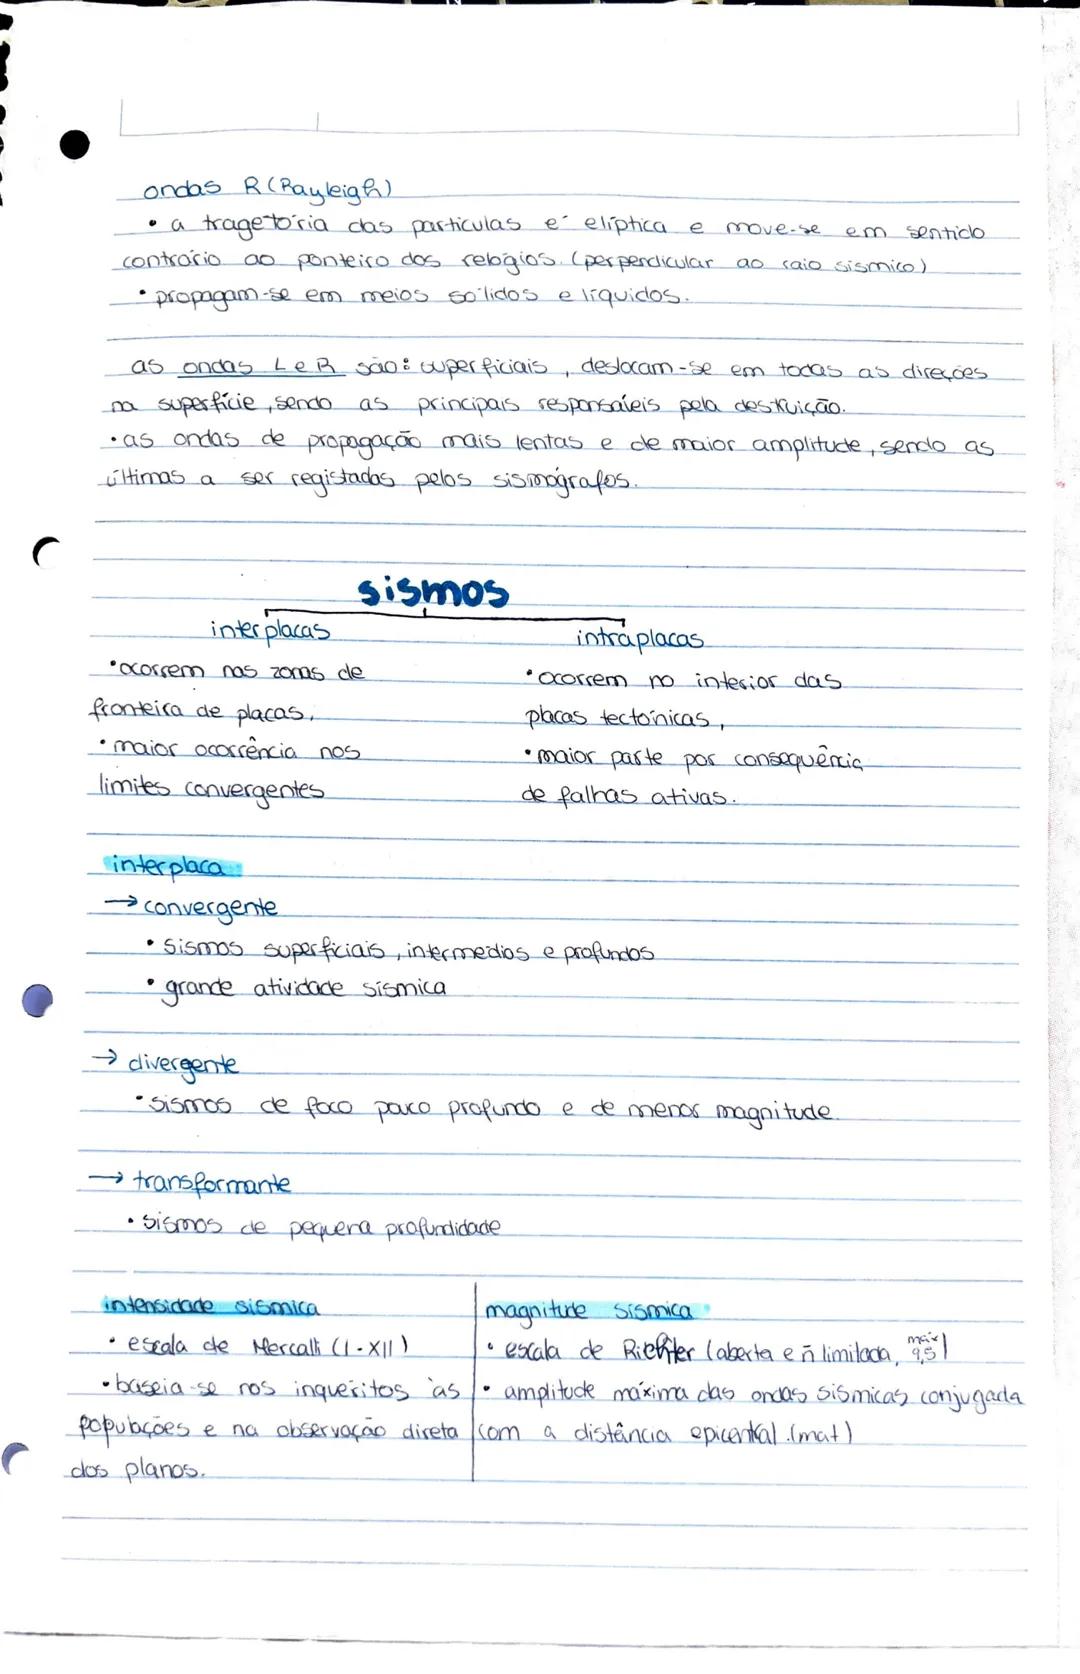 ondas R (Rayleigh)
• a tragetória das partículas é elíptica e move-se em sentido
contrário ao ponteiro dos relógios. (perpendicular ao raio sísmico)
• propagam-se em meios sólidos e líquidos.
as ondas L e R são: superficiais, deslocam-se em todas as direções
na superfície, sendo as principais responsáveis pela destruição.
• as ondas de propagação mais lentas e de maior amplitude, sendo as
últimas a ser registadas pelos sismógrafos.
sismos
interplacas
• ocorrem nas zonas de
fronteira de placas,
• maior ocorrência nos
limites convergentes
intraplacas
• ocorrem no interior das
placas tectónicas,
• maior parte por consequência
de falhas ativas.
interplaca
→ convergente
• sismos superficiais, intermedios e profundos
• grande atividade sísmica
→ divergente
• sismos de foco pouco profundo e de menor magnitude.
→ transformante
• sismos de pequena profundidade
intensidade sísmica
• escala de Mercalli (I-XII)
• baseia-se nos inquéritos às
populações e na observação direta
dos planos.
magnitude sísmica
• escala de Richter (aberta e ñ limitada, máx 9,5)
• amplitude máxima das ondas sísmicas conjugada
com a distância epicentral. (mat)